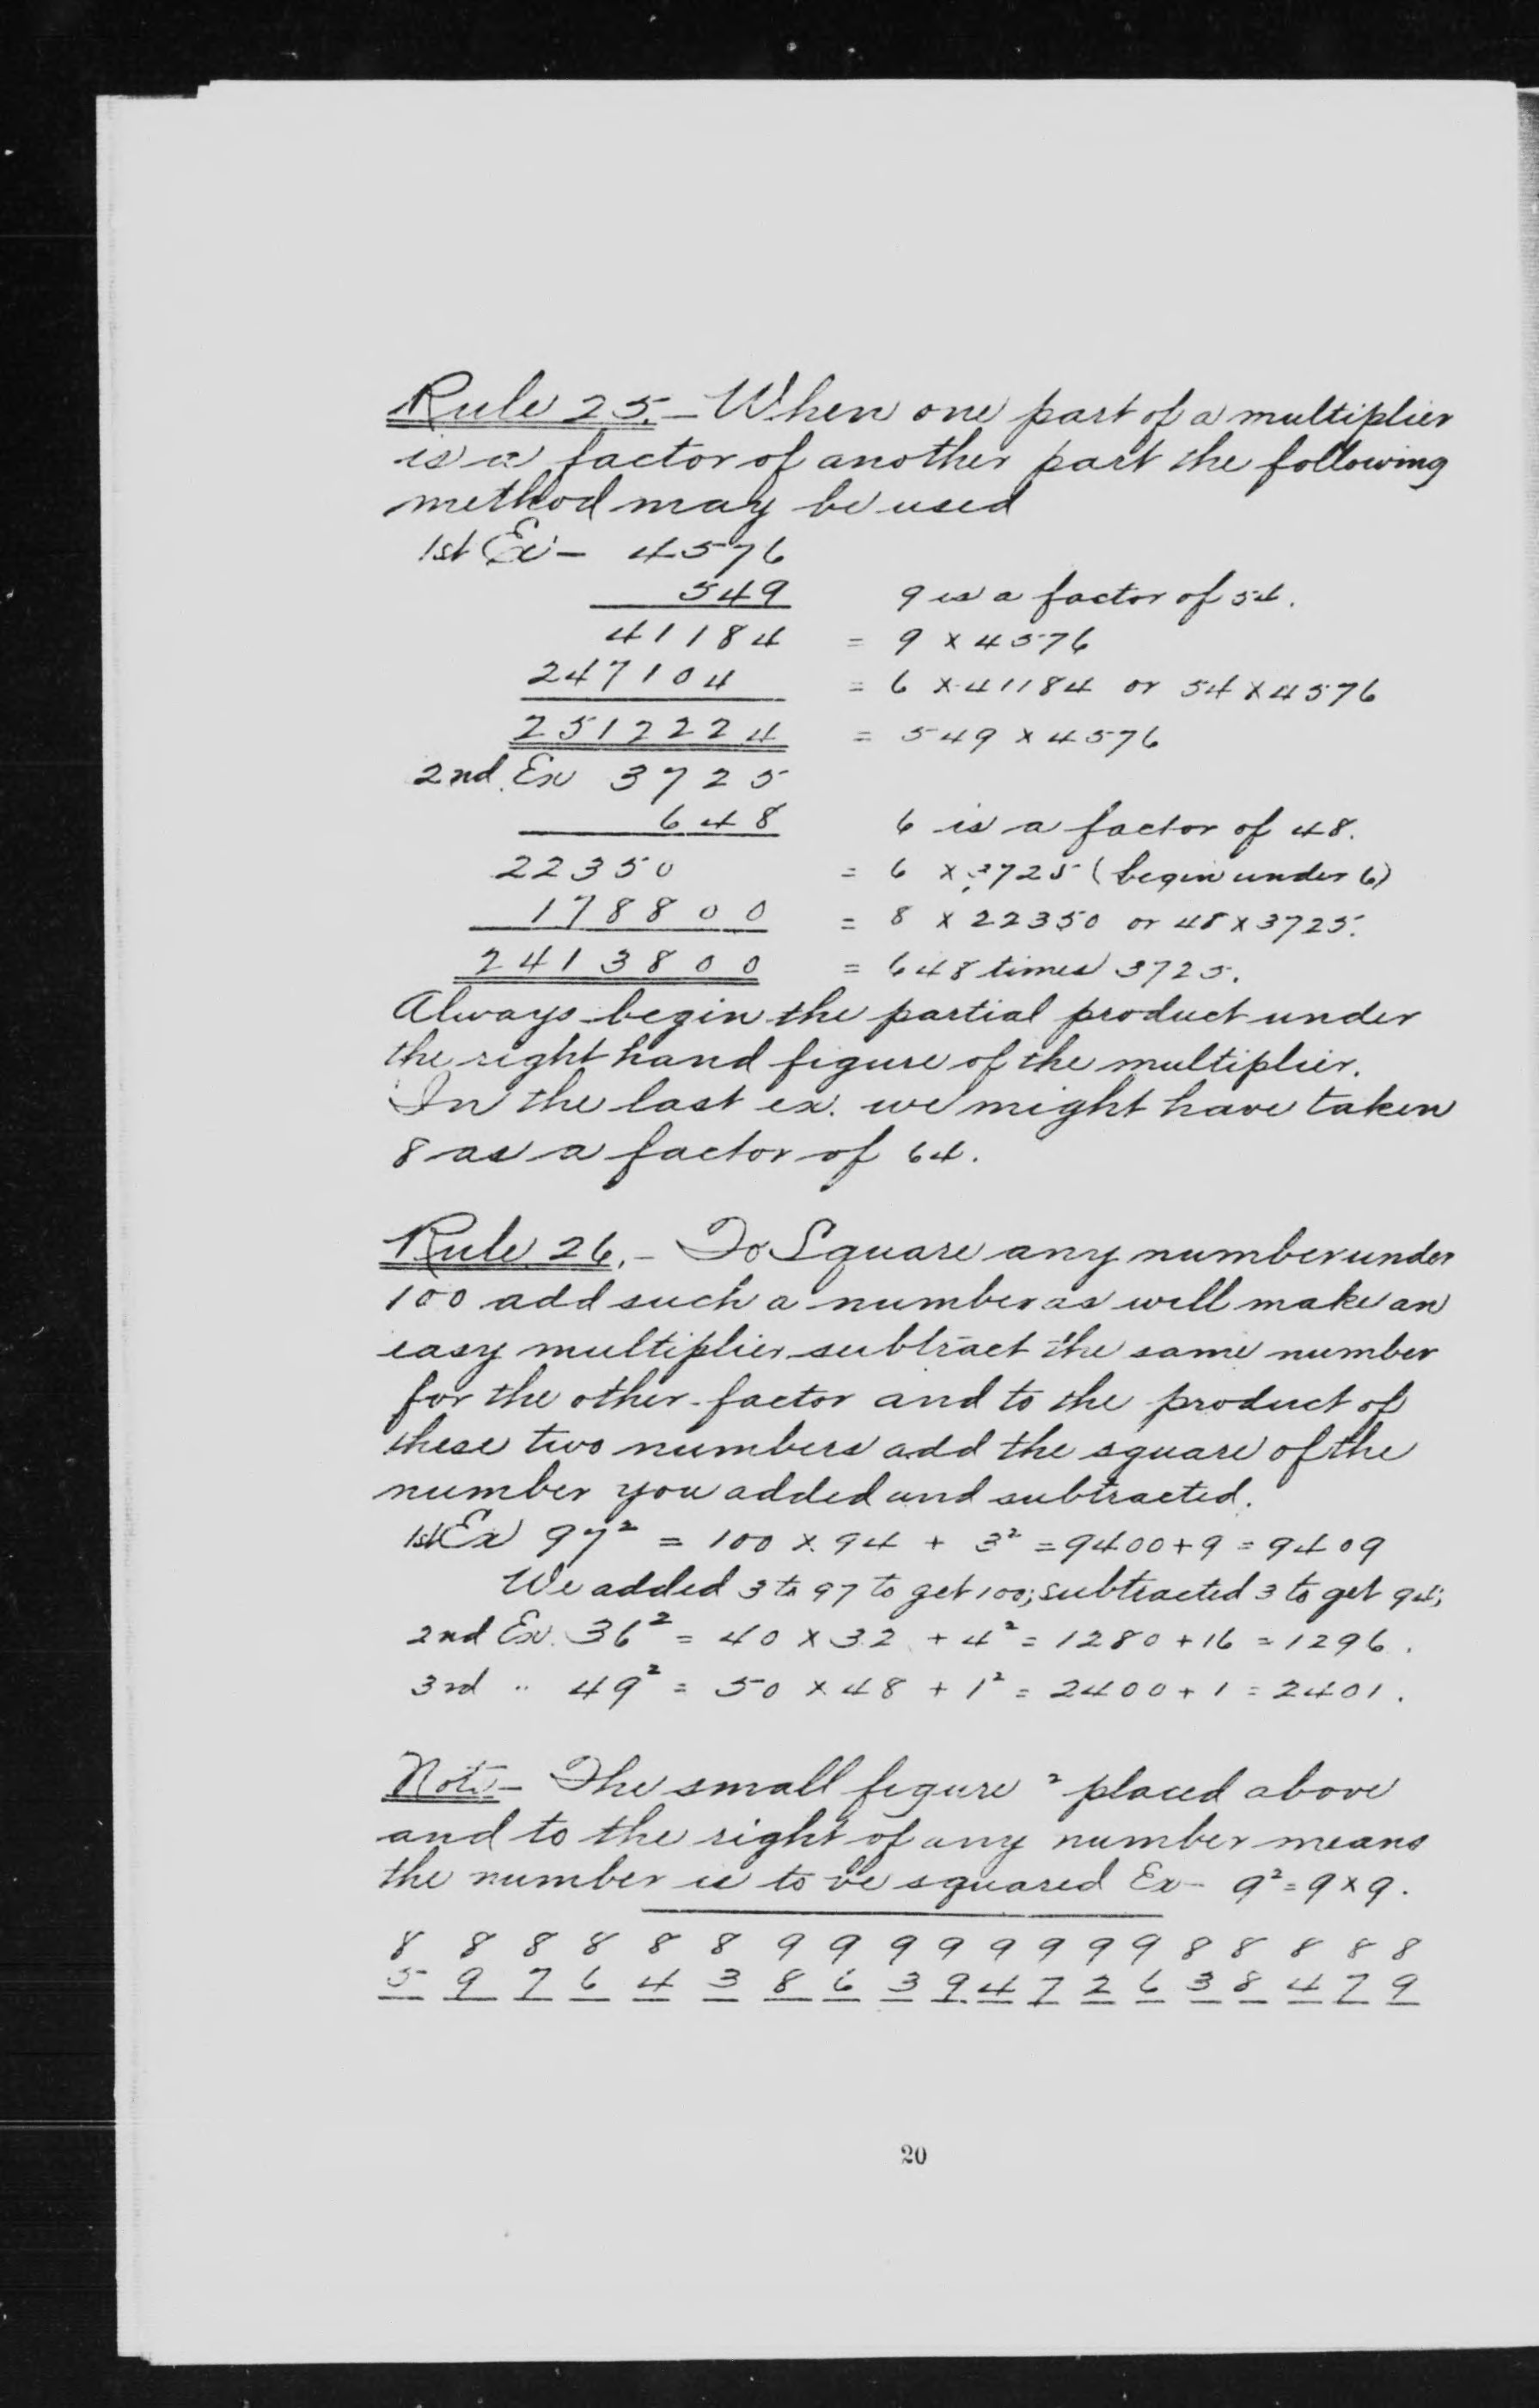 Rule 25.- When one part of a multiplier
is a factor of another part the following
method may be used
1st Ex- 4576
549 9 is a factor of 54.
41184 = 9 x 4576
247104 = 6 x 41184 or 54 x 4576
2512224 = 549 x 4576
2nd. Ex 3725
648 6 is a factor of 48.
22350 = 6 x 3725 (begin under 6)
178800 = 8 x 22350 or 48 x 3725.
2413800 = 648 times 3725.
Always begin the partial product under
the right hand figure of the multiplier.
In the last ex. we might have taken
8 as a factor of 64.
Rule 26.- To Square any number under
100 add such a number as will make an
easy multiplier subtract the same number
for the other factor and to the product of
these two numbers add the square of the
number you added and subtracted.
1st Ex 97² = 100 x 94 + 3² = 9400 + 9 = 9409
We added 3 to 97 to get 100; subtracted 3 to get 94;
2nd Ex. 36² = 40 x 32 + 4² = 1280 + 16 = 1296.
3rd " 49² = 50 x 48 + 1² = 2400 + 1 = 2401.
Note- The small figure ² placed above
and to the right of any number means
the number is to be squared Ex- 9² = 9 x 9.
8 8 8 8 8 8 9 9 9 9 9 9 9 9 8 8 8 8 8
5 9 7 6 4 3 8 6 3 9 4 7 2 6 3 8 4 7 9
20